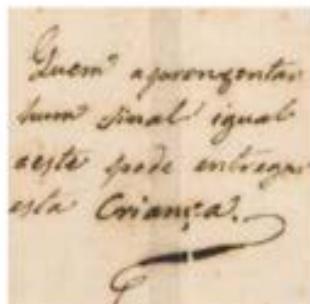 Quem aprezentar
hum sinal igual
aeste pode entregar
esta Criança.